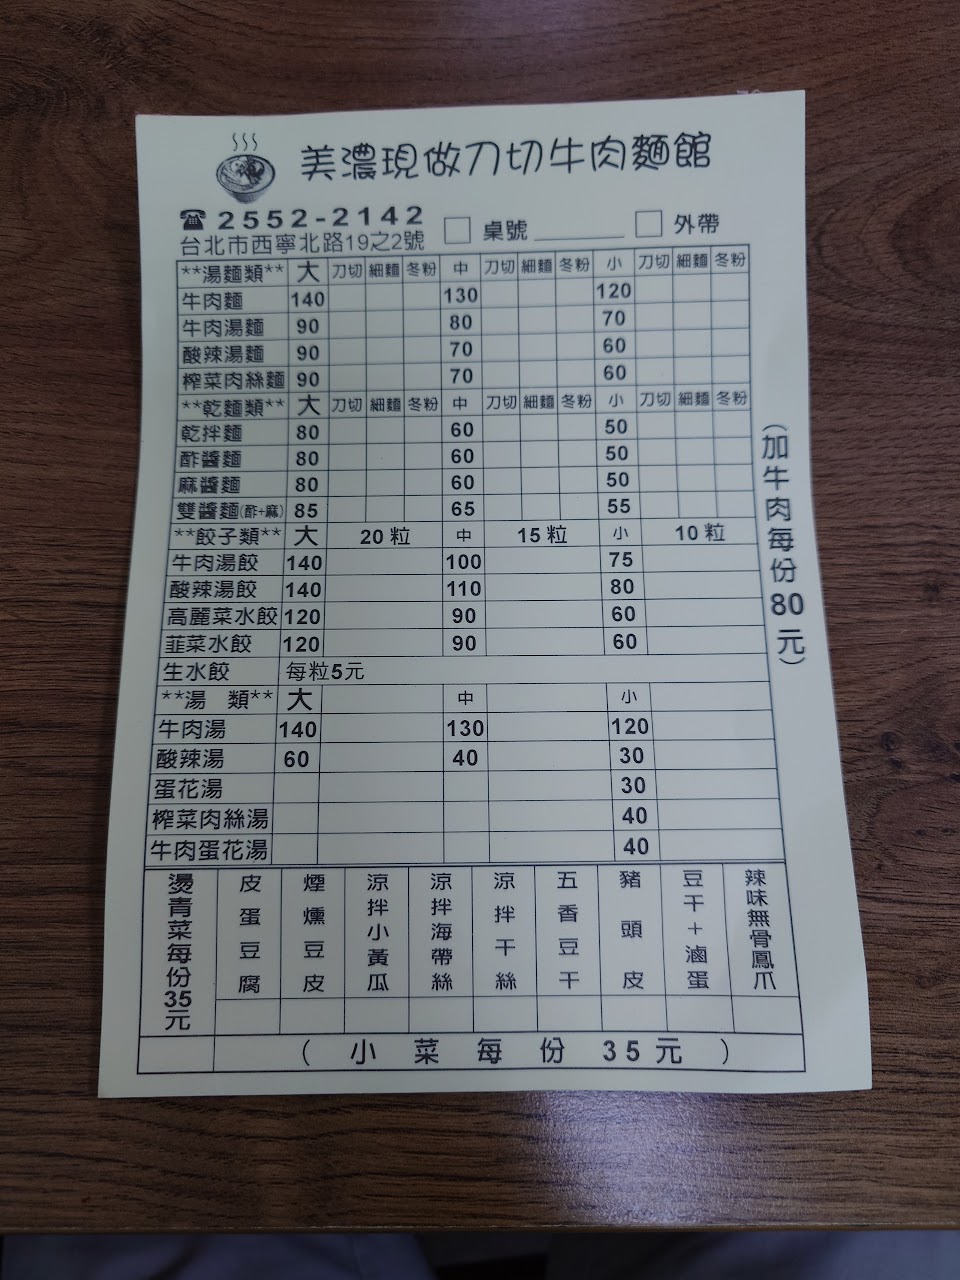 美濃現做刀切牛肉麵館
☎ 2552-2142
台北市西寧北路19之2號
□ 桌號______ □ 外帶
**湯麵類** 大 刀切 細麵 冬粉 中 刀切 細麵 冬粉 小 刀切 細麵 冬粉
牛肉麵 140 130 120
牛肉湯麵 90 80 70
酸辣湯麵 90 70 60
榨菜肉絲麵 90 70 60
**乾麵類** 大 刀切 細麵 冬粉 中 刀切 細麵 冬粉 小 刀切 細麵 冬粉
乾拌麵 80 60 50
酢醬麵 80 60 50
麻醬麵 80 60 50
雙醬麵(酢+麻) 85 65 55
**餃子類** 大 20粒 中 15粒 小 10粒
牛肉湯餃 140 100 75
酸辣湯餃 140 110 80
高麗菜水餃 120 90 60
韮菜水餃 120 90 60
生水餃 每粒5元
**湯 類** 大 中 小
牛肉湯 140 130 120
酸辣湯 60 40 30
蛋花湯 30
榨菜肉絲湯 40
牛肉蛋花湯 40
(加牛肉每份80元)
燙青菜每份35元
皮蛋豆腐
煙燻豆皮
涼拌小黃瓜
涼拌海帶絲
涼拌干絲
五香豆干
豬頭皮
豆干+滷蛋
辣味無骨鳳爪
(小菜每份35元)